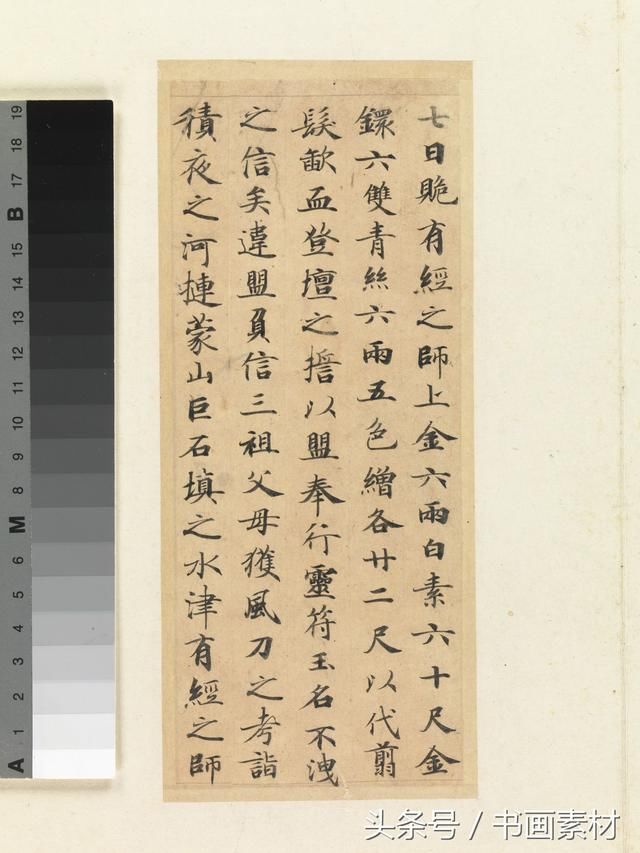 七日贶有經之師上金六兩白素六十尺金
鐶六雙青絲六兩五色繒各廿二尺以代翦
髮歃血登壇之誓以盟奉行靈符玉名不洩
之信矣違盟負信三祖父母獲風刀之考詣
積夜之河摙蒙山巨石填之水津有經之師
头条号 / 书画素材
19
18
17
B
16
15
14
13
12
11
10
9
8
M
7
6
5
4
3
2
1
A